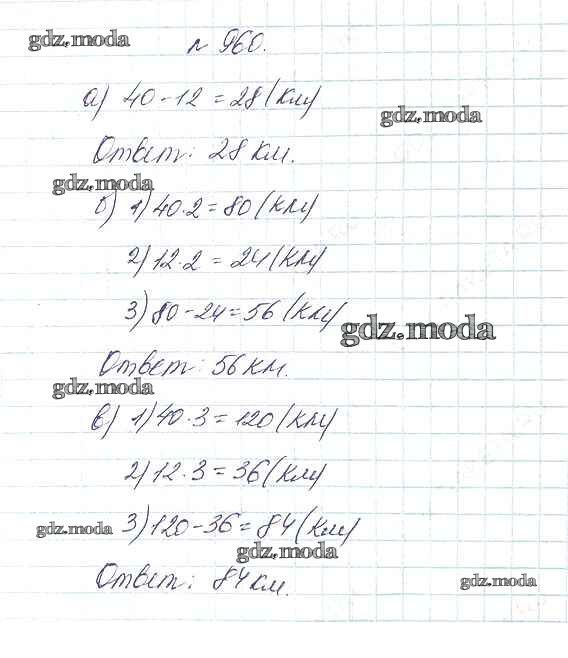 gdz.moda
№ 960.
а) 40 - 12 = 28 (км)
gdz.moda
Ответ: 28 км.
gdz.moda
б) 1) 40 · 2 = 80 (км)
2) 12 · 2 = 24 (км)
3) 80 - 24 = 56 (км)
gdz.moda
Ответ: 56 км.
gdz.moda
в) 1) 40 · 3 = 120 (км)
2) 12 · 3 = 36 (км)
gdz.moda 3) 120 - 36 = 84 (км)
gdz.moda
Ответ: 84 км.
gdz.moda